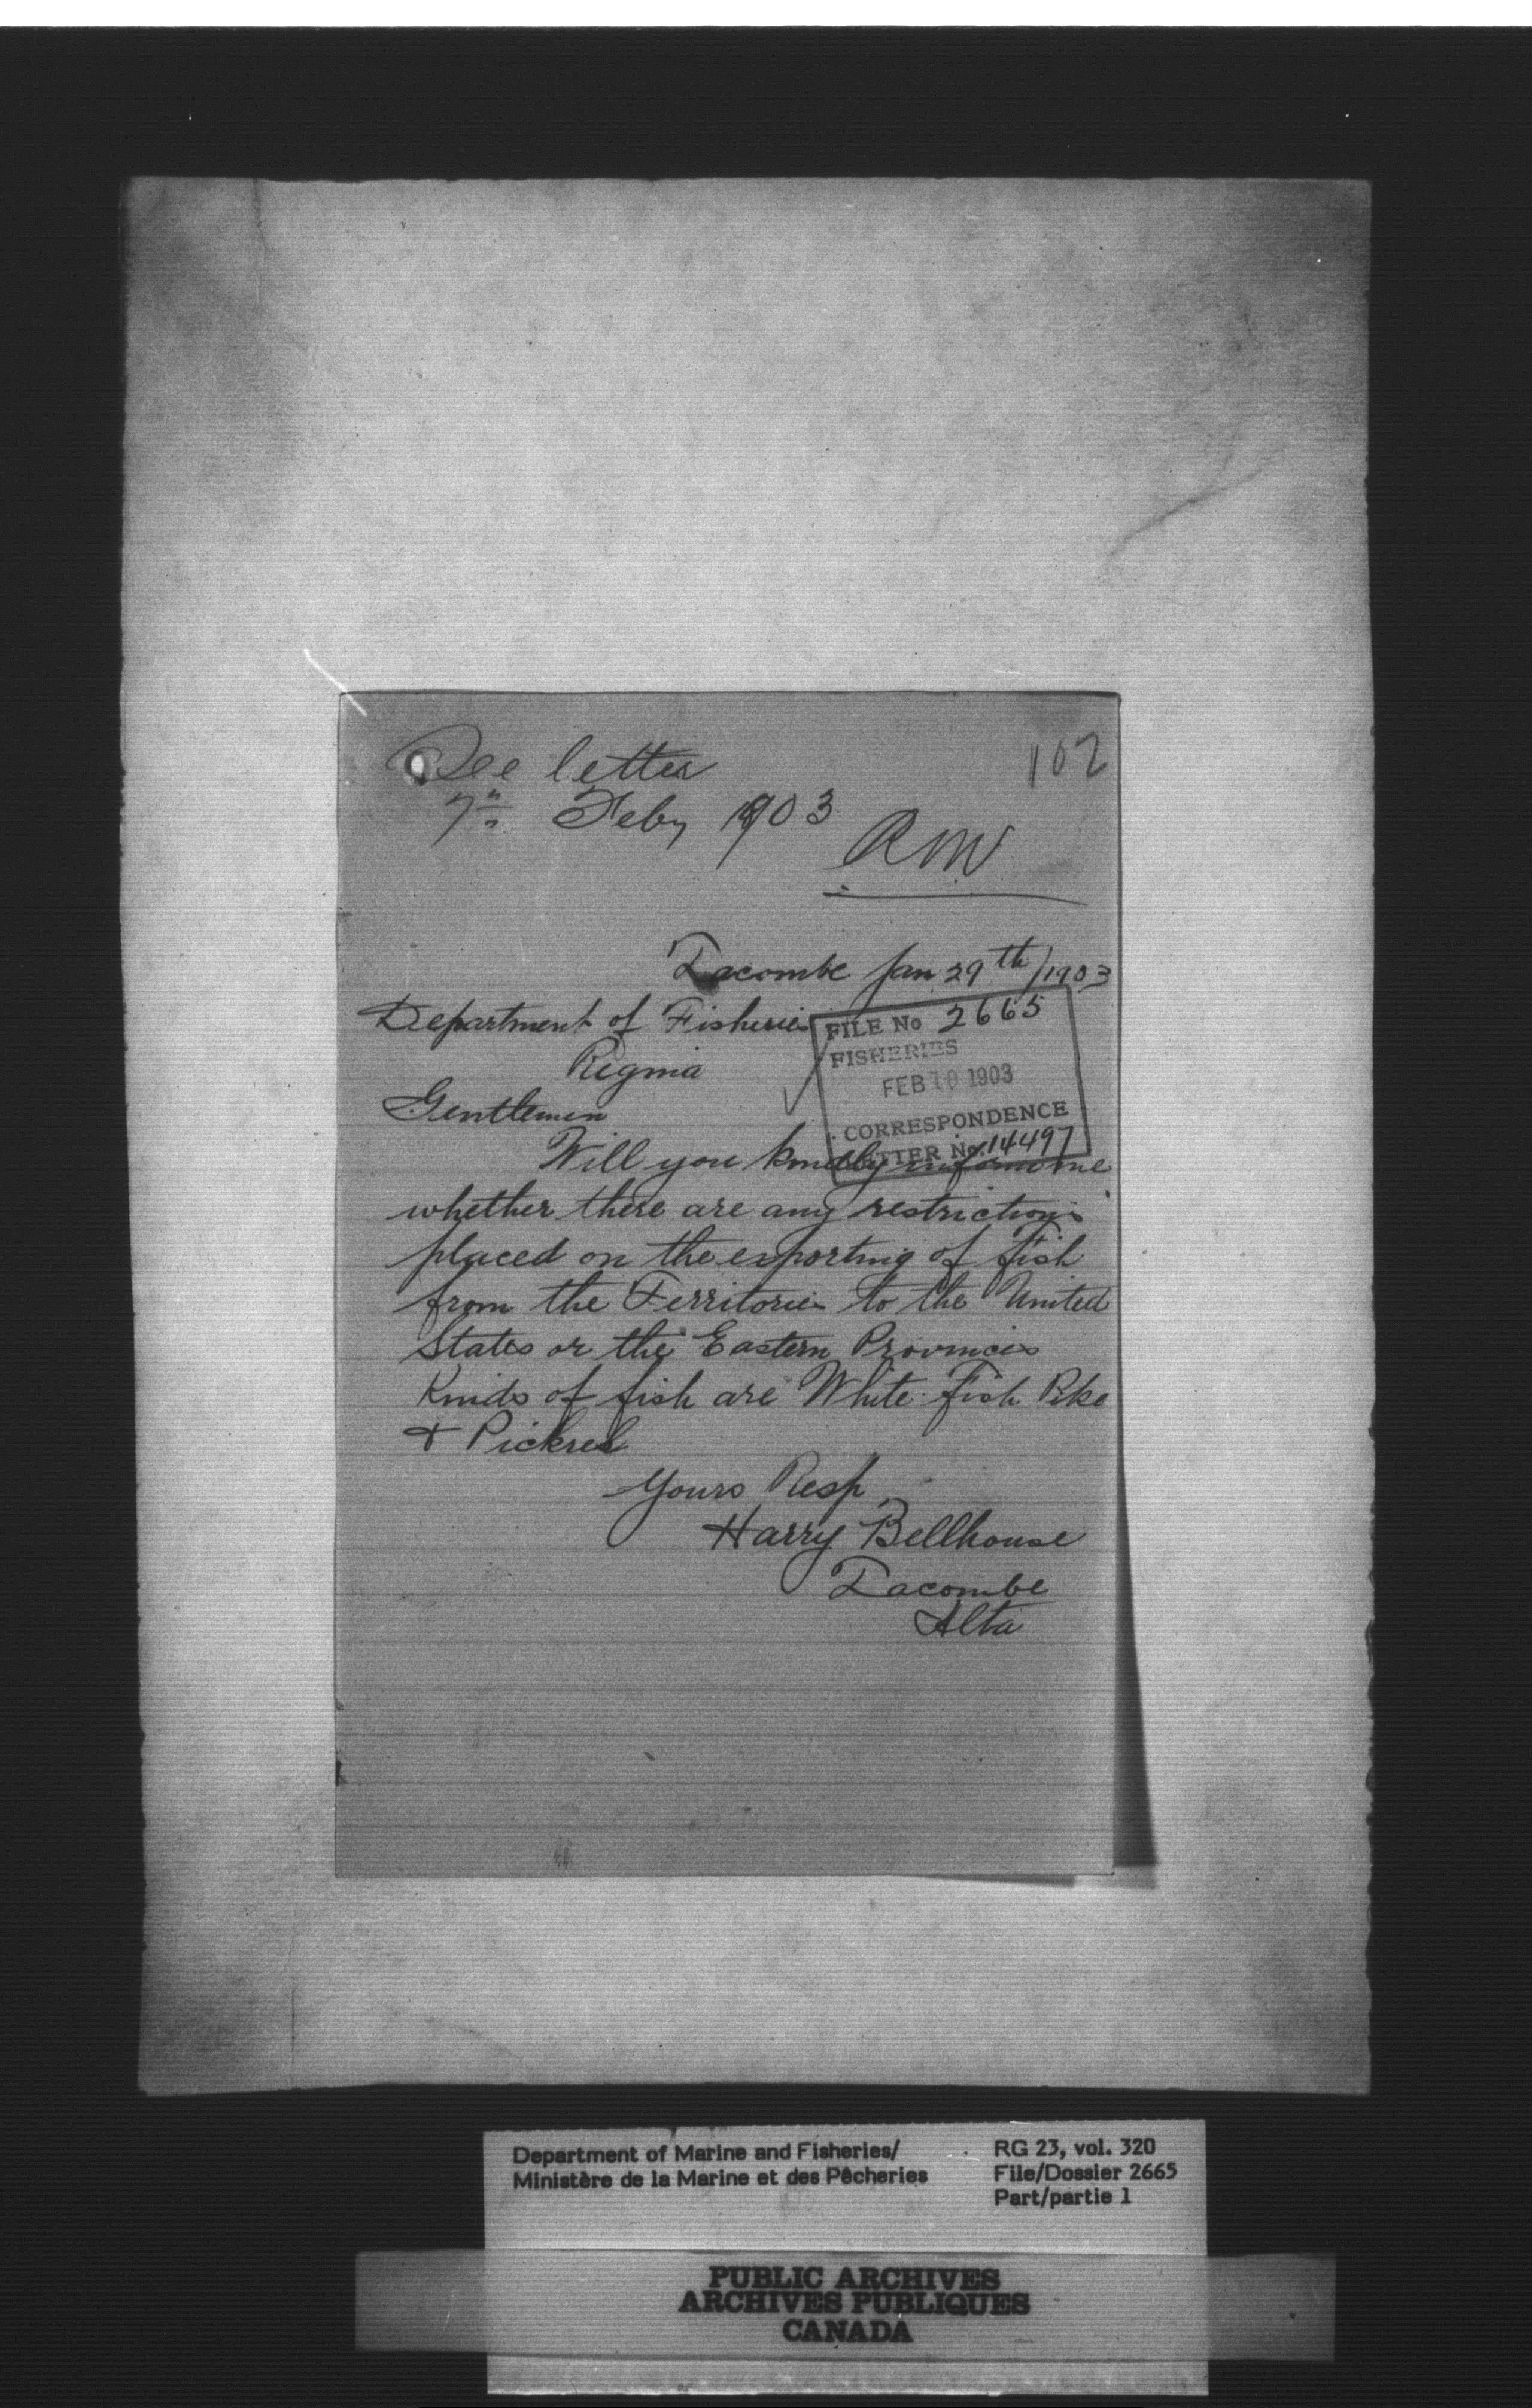 See letter
102
7th Feby 1903
RMW
Lacombe Jan 29th/1903
Department of Fisheries
Regina
FILE No 2665
FISHERIES
FEB 10 1903
CORRESPONDENCE
LETTER No. 14497
Gentlemen
Will you kindly inform me
whether there are any restrictions
placed on the exporting of fish
from the Territories to the United
States or the Eastern Provinces
Kinds of fish are White Fish Pike
+ Pickrel
Yours Resp
Harry Bellhouse
Lacombe
Alta
Department of Marine and Fisheries/
Ministère de la Marine et des Pêcheries
RG 23, vol. 320
File/Dossier 2665
Part/partie 1
PUBLIC ARCHIVES
ARCHIVES PUBLIQUES
CANADA